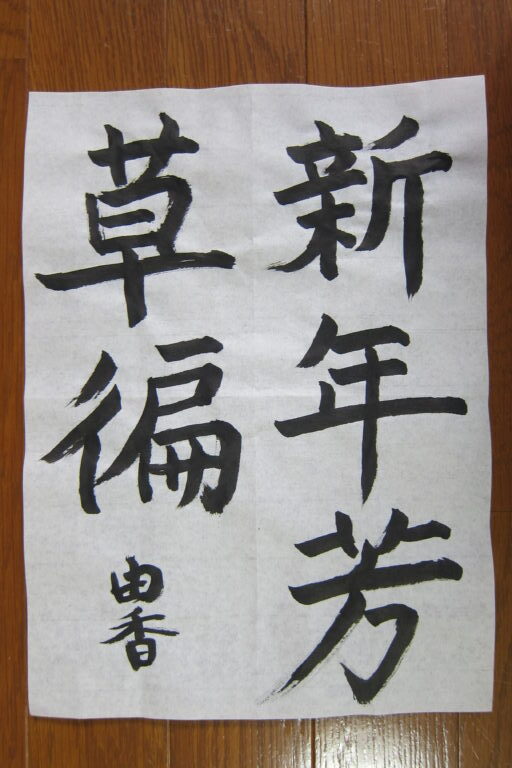 新年芳
草徧
由香